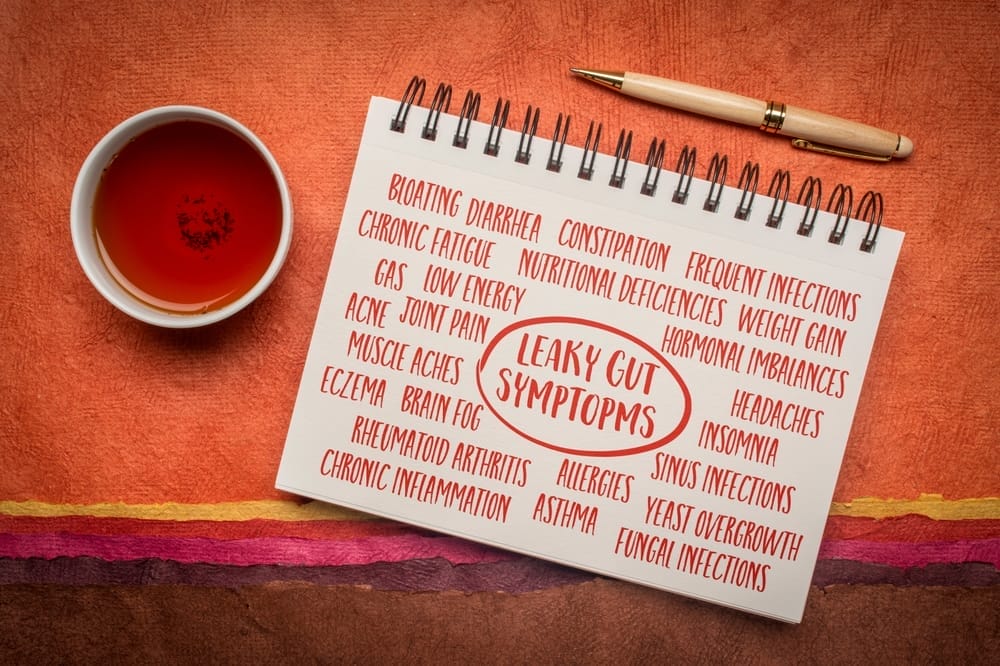 BLOATING DIARRHEA CONSTIPATION FREQUENT INFECTIONS
CHRONIC FATIGUE NUTRITIONAL DEFICIENCIES WEIGHT GAIN
GAS LOW ENERGY HORMONAL IMBALANCES
ACNE JOINT PAIN
LEAKY GUT
SYMPTOPMS
MUSCLE ACHES HEADACHES
ECZEMA BRAIN FOG INSOMNIA
RHEUMATOID ARTHRITIS ALLERGIES SINUS INFECTIONS
CHRONIC INFLAMMATION ASTHMA YEAST OVERGROWTH
FUNGAL INFECTIONS